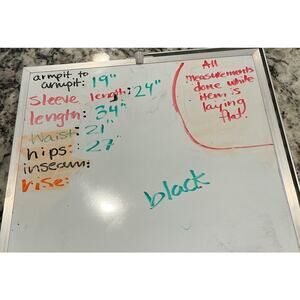 armpit to
armpit: 19"
Sleeve length: 24"
length: 34"
Waist: 21"
hips: 27"
inseam:
rise:
All
measurements
done while
item is
laying
flat.
black